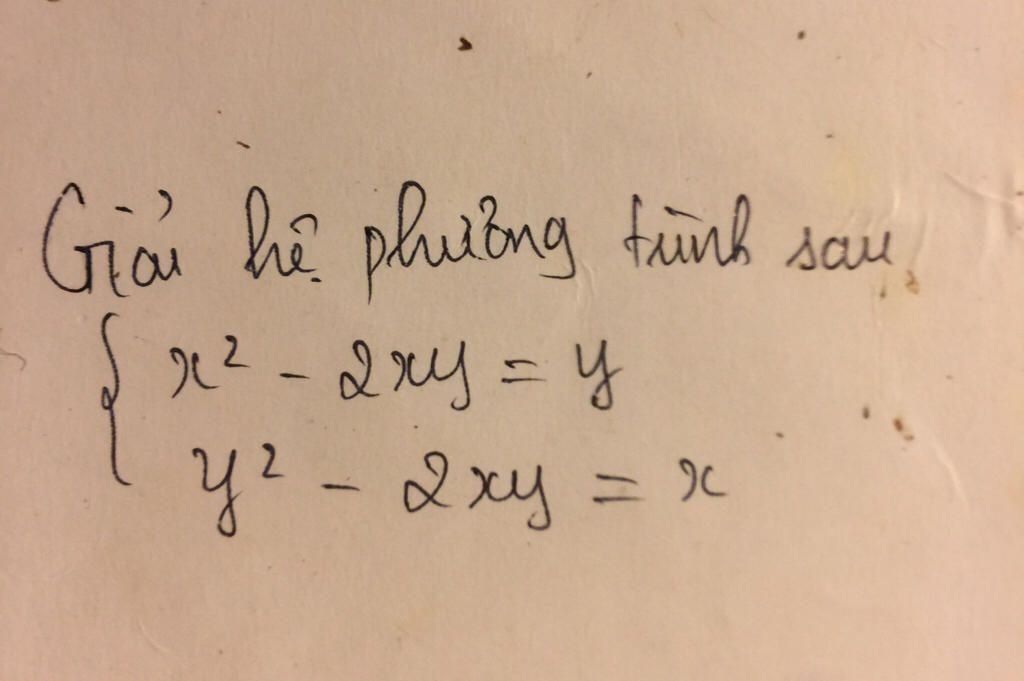 Giải hệ phương trình sau
x² - 2xy = y
y² - 2xy = x